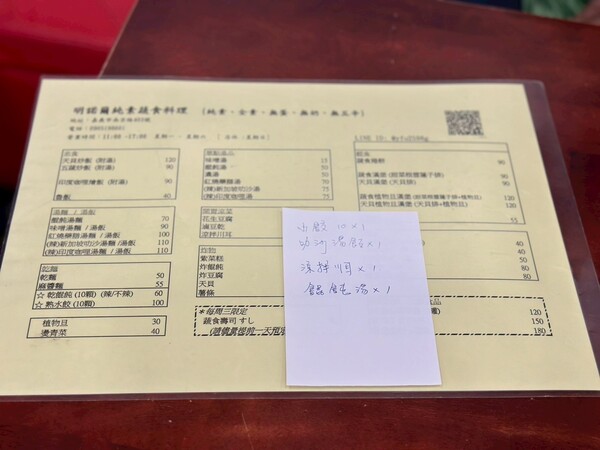 明諾爾純素蔬食料理 (純素、全素、無蛋、無奶、無五辛)
營業時間：11:00 -17:00
天貝炒飯 (附湯) 120
五蔬炒飯 (附湯) 90
印度咖哩燴飯 (附湯) 90
魯飯 40
味噌湯 15
餛飩湯 50
羹湯 50
紅燒藥膳湯 70
(辣)新加坡叻沙湯 75
(辣)印度咖哩湯 75
90
蔬食漢堡
天貝漢堡 (天貝排) 90
蔬食植物豆漢堡
天貝植物豆漢堡 (天貝排+植物豆)
55
湯麵 / 湯飯
餛飩湯麵 70
味噌湯麵 / 湯飯 90
紅燒藥膳湯麵 / 湯飯 100
(辣)新加坡叻沙湯麵 /湯飯 110
(辣)印度咖哩湯麵 / 湯飯 110
花生豆腐
滷豆乾
涼拌川耳
乾麵
乾麵 50
麻醬麵 55
☆ 乾餛飩 (10顆) (辣/不辣) 60
☆ 熟水餃 (10顆) 100
炸物
紫菜糕
炸餛飩
炸豆腐
天貝
薯條
植物豆 30
燙青菜 40
*每周三限定
蔬食壽司 すし
120
150
180
水餃 10 x 1
叻沙湯麵 x 1
涼拌川耳 x 1
餛飩湯 x 1